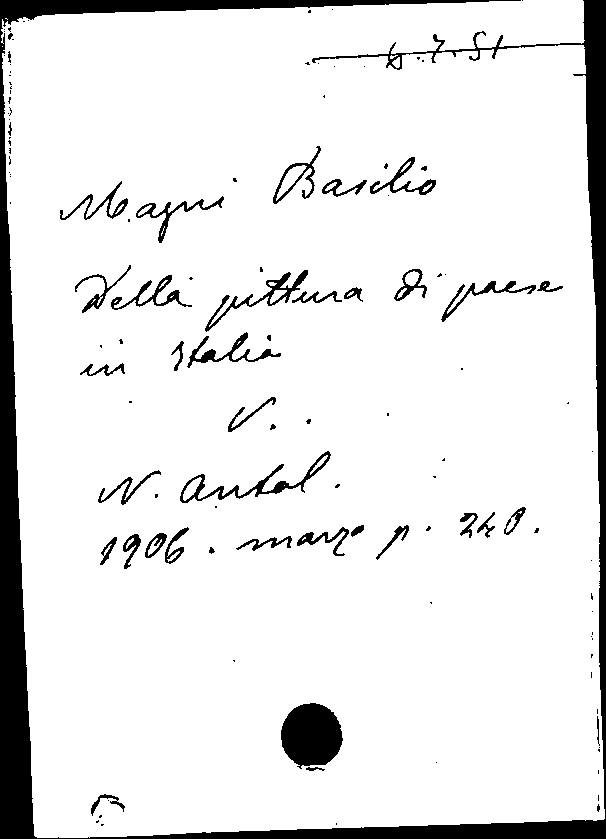 6.7.51
Magni Basilio
Della pittura di paese
in Italia
V.
N. Antol.
1906. marzo p. 240.